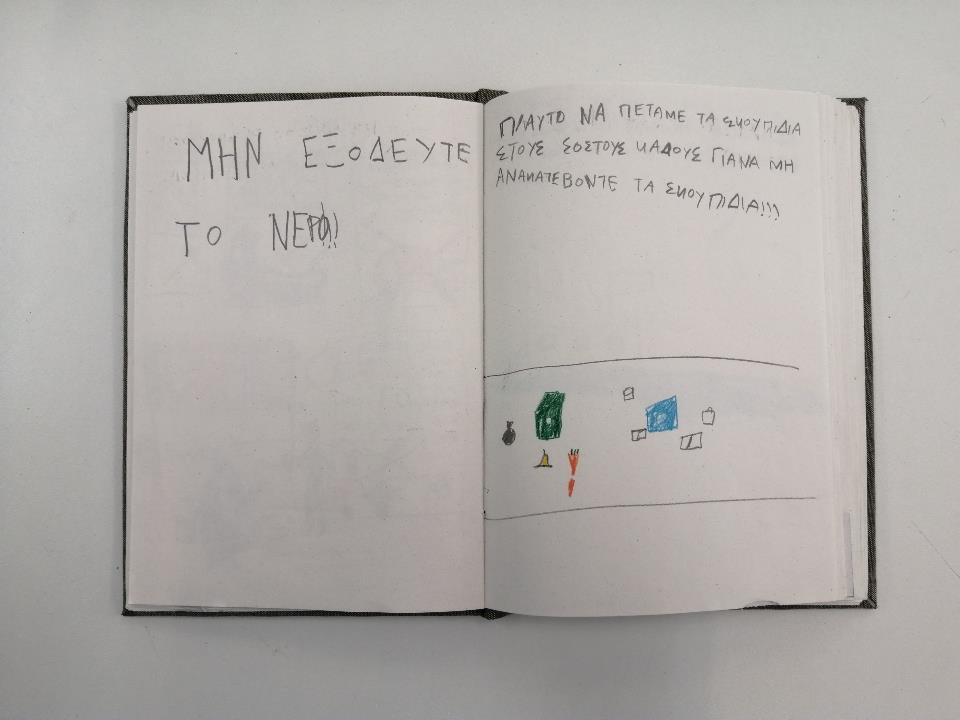 ΜΗΝ ΕΞΟΔΕΥΤΕ
ΤΟ ΝΕΡΟ!!
ΠΙΑΥΤΟ ΝΑ ΠΕΤΑΜΕ ΤΑ ΣΚΟΥΠΙΔΙΑ
ΣΤΟΥΣ ΣΟΣΤΟΥΣ ΚΑΔΟΥΣ ΓΙΑΝΑ ΜΗ
ΑΝΑΚΑΤΕΒΟΝΤΕ ΤΑ ΣΚΟΥΠΙΔΙΑ!!!